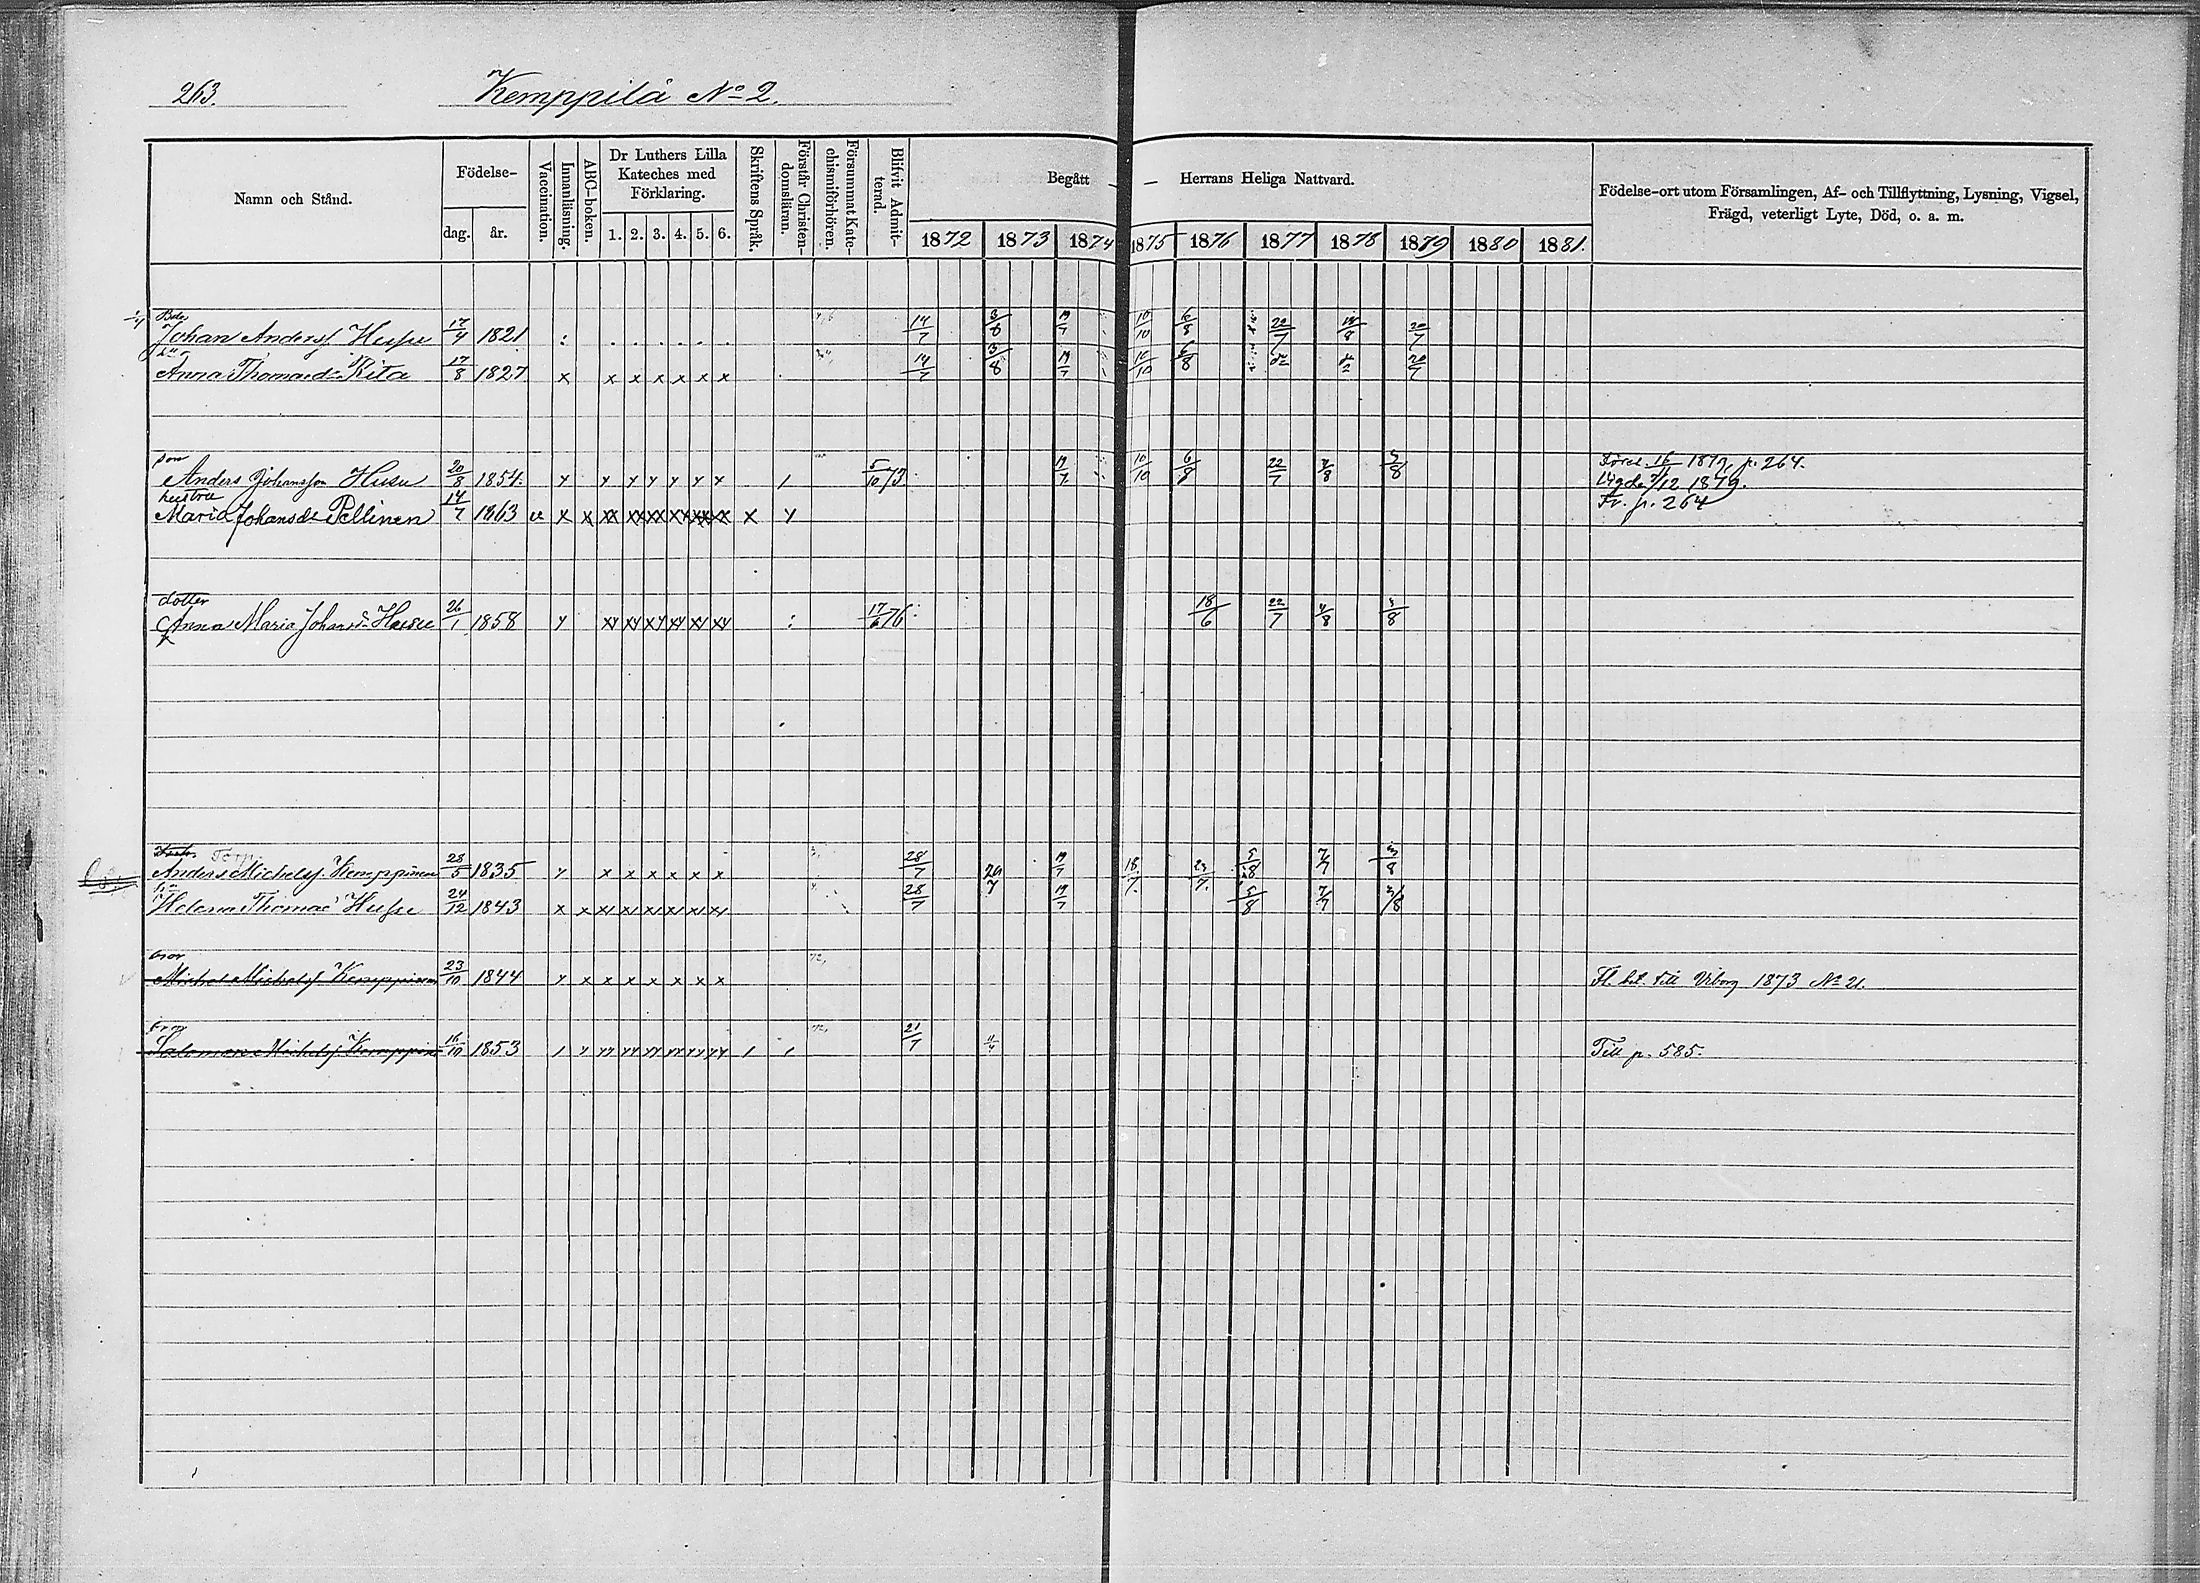 263. Kemppilä No 2.
Namn och Stånd. Födelse- dag. år. Vaccination. Innanläsning. ABC-boken. Dr Luthers Lilla Kateches med Förklaring. 1. 2. 3. 4. 5. 6. Skriftens Språk. Förstår Christendomsläran. Försummat Katechismiförhören. Blifvit Admitterad. Begått — — Herrans Heliga Nattvard. Födelse-ort utom Församlingen, Af- och Tillflyttning, Lysning, Vigsel, Frägd, veterligt Lyte, Död, o. a. m.
1872 1873 1874 1875 1876 1877 1878 1879 1880 1881.
Johan Andersf. Husu 17/4 1821 : . . . . . . 14/7 3/8 19/7 10/10 6/8 22/7 18/8 20/7
Anna Thomasdr Rita 17/8 1827 x x x x x x x 14/7 3/8 19/7 10/10 6/8 20/7
son
Anders Johansson Husu 20/8 1854. y y y y y y x / 5/10 73. 19/7 10/10 6/8 22/7 4/8 3/8 16/11 1879, p. 264.
Vigde /12 1879.
hustru
Maria Johansdr Pellinen 14/7 1863 v x x xx xx xx xx xx xx x y Fr. p. 264
dotter
Anna Maria Johansdr Husu 26/1 1858 y xy xy xy xy xy xy : 17/6 76. 18/6 22/7 4/8 3/8
Anders Michelsf. Kemppinen 28/5 1835 y x x x x x x 28/7 29/7 19/7 18/7. 23/7. 5/8 7/7 3/8
Helena Thomae Husu 24/12 1843 x x xy xy xy xy xy xy 28/7 19/7 5/8 7/7 3/8
bror
Michel Michelsf Kemppinen 23/10 1844 y x x x x x x x 72, Fl. bet. till Viborg 1873 No 21.
bror
Salomon Michelsf Kemppinen 16/10 1853 / y yy yy yy yy yy yy / / 72, 21/7 Till p. 585.